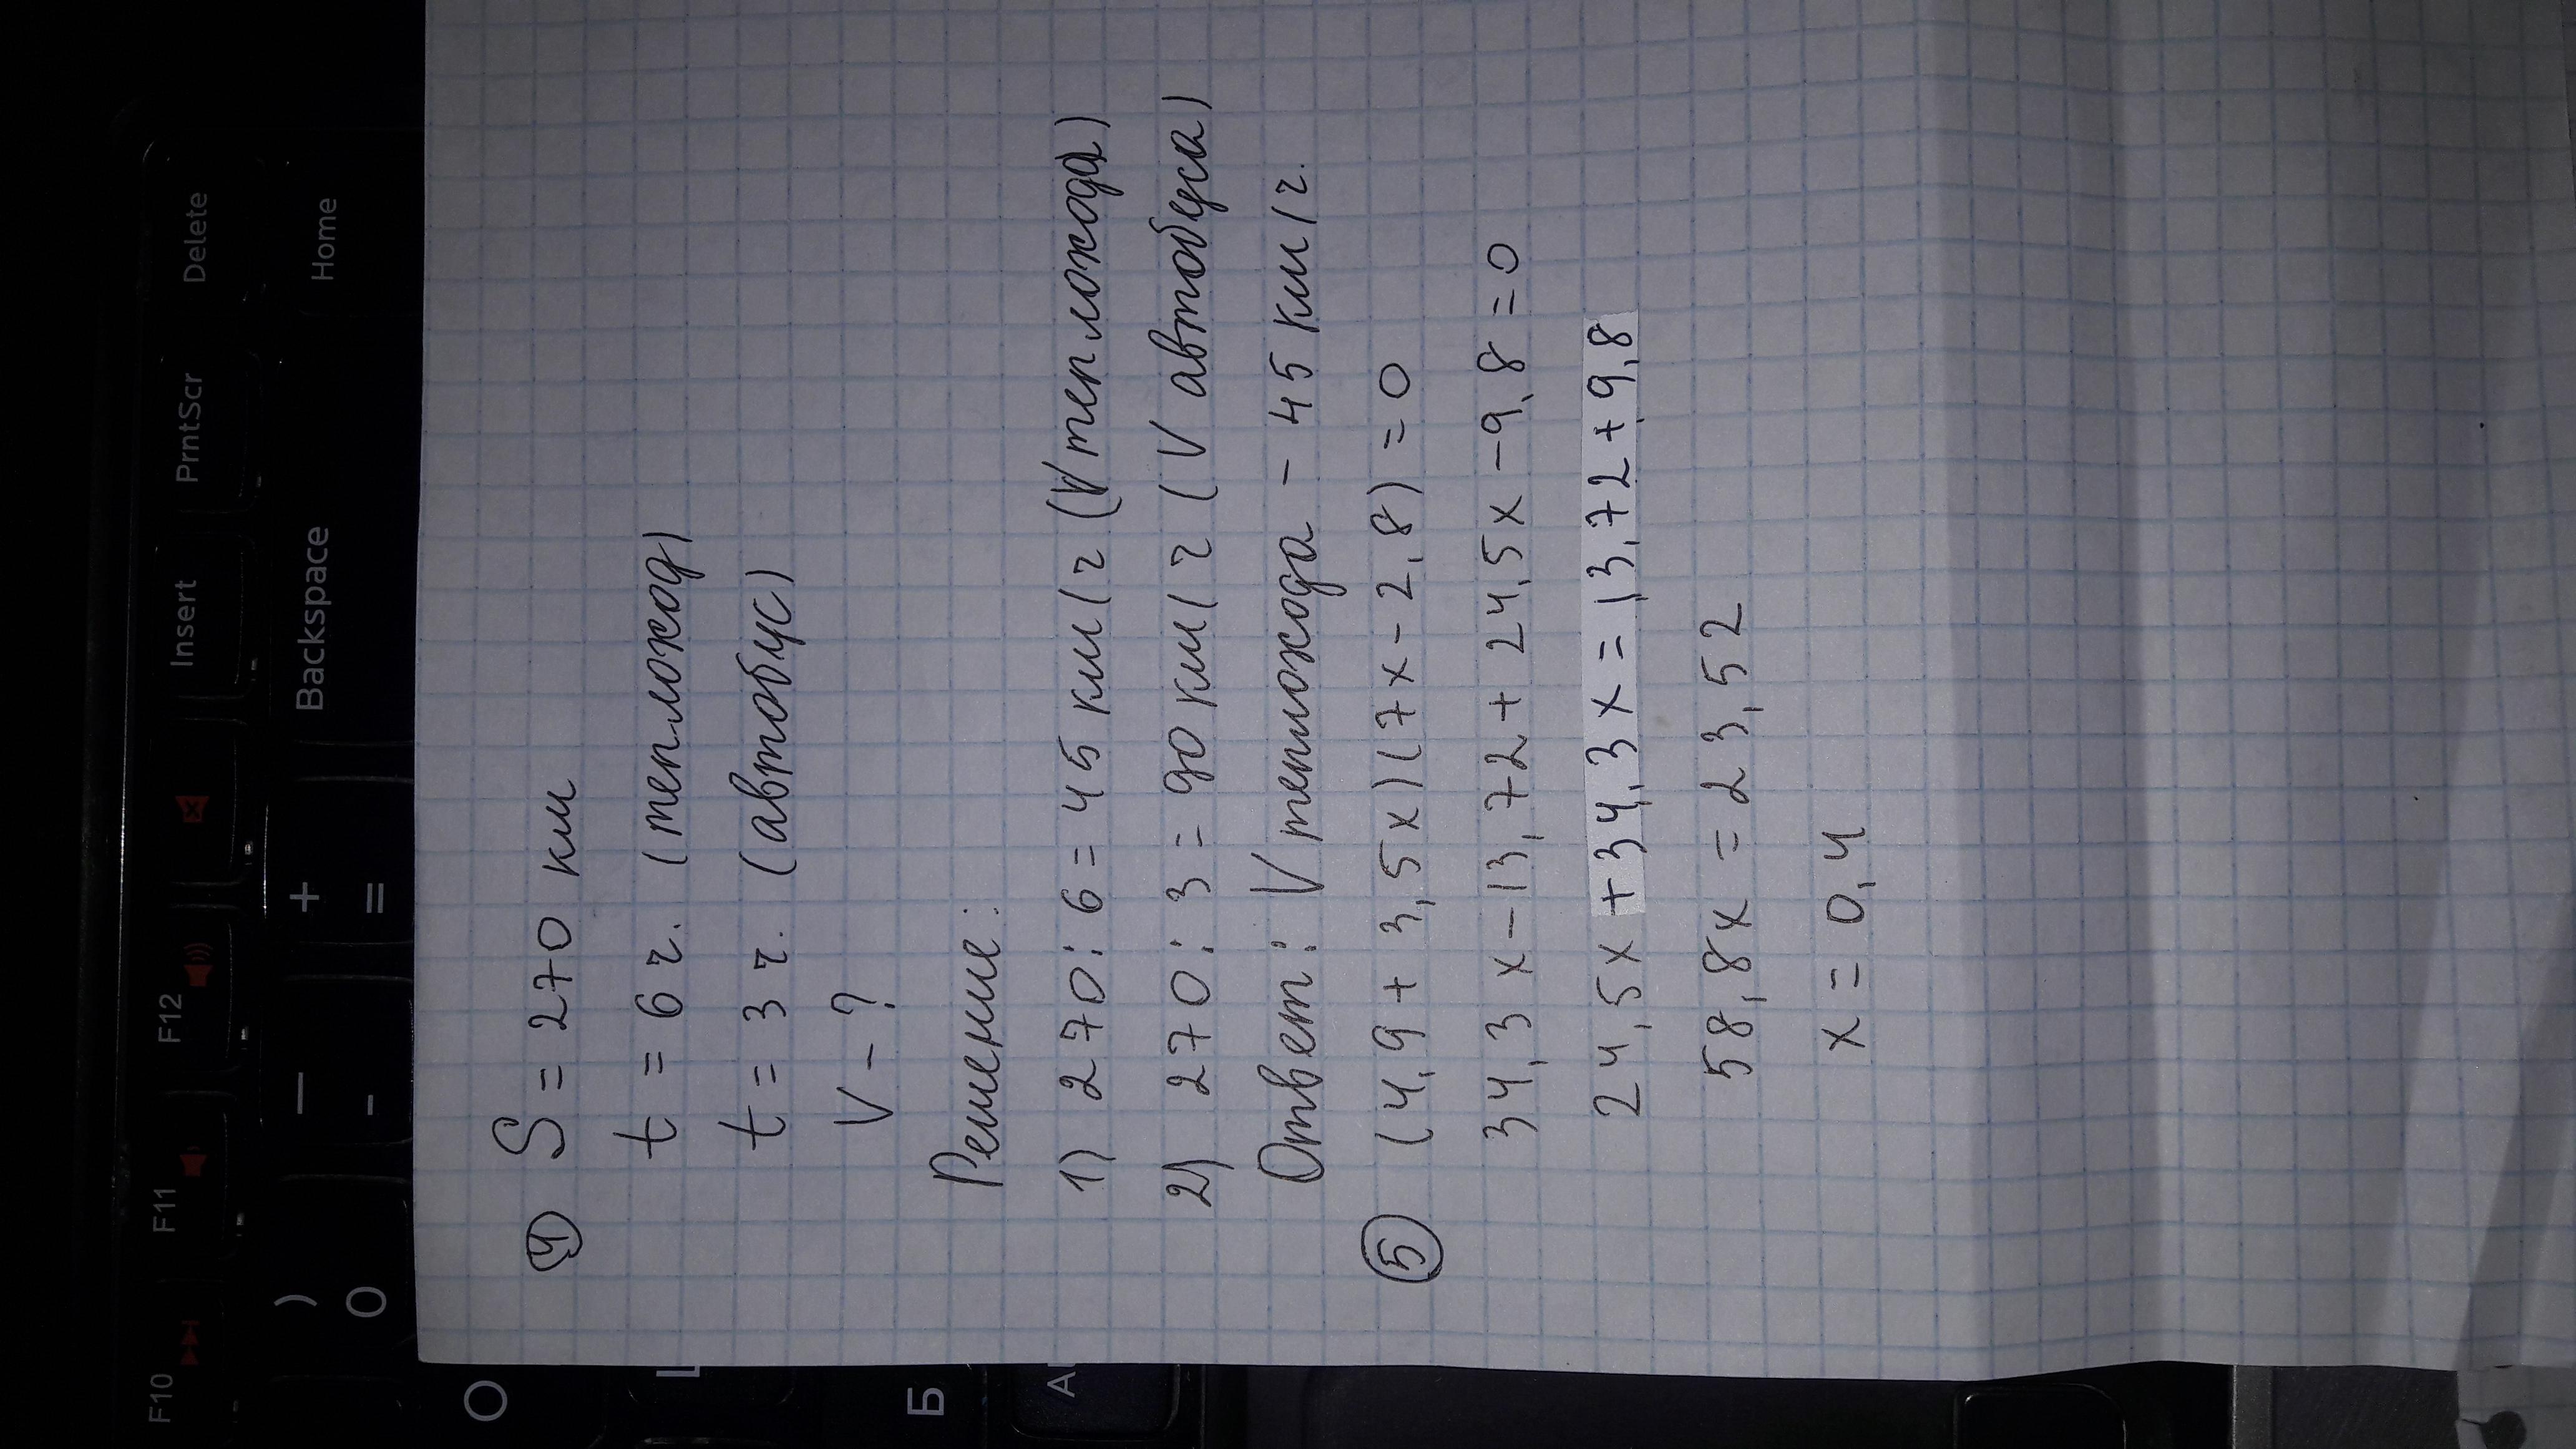 ④ S = 270 км
t = 6 ч. (теплоход)
t = 3 ч. (автобус)
V - ?
Решение:
1) 270 : 6 = 45 км/ч (V теплохода)
2) 270 : 3 = 90 км/ч (V автобуса)
Ответ: V теплохода - 45 км/ч.
⑤ (4,9 + 3,5x)(7x - 2,8) = 0
34,3x - 13,72 + 24,5x - 9,8 = 0
24,5x + 34,3x = 13,72 + 9,8
58,8x = 23,52
x = 0,4
F10 F11 F12 Insert PrntScr Delete
) 0 — - + = Backspace Home
О
Б